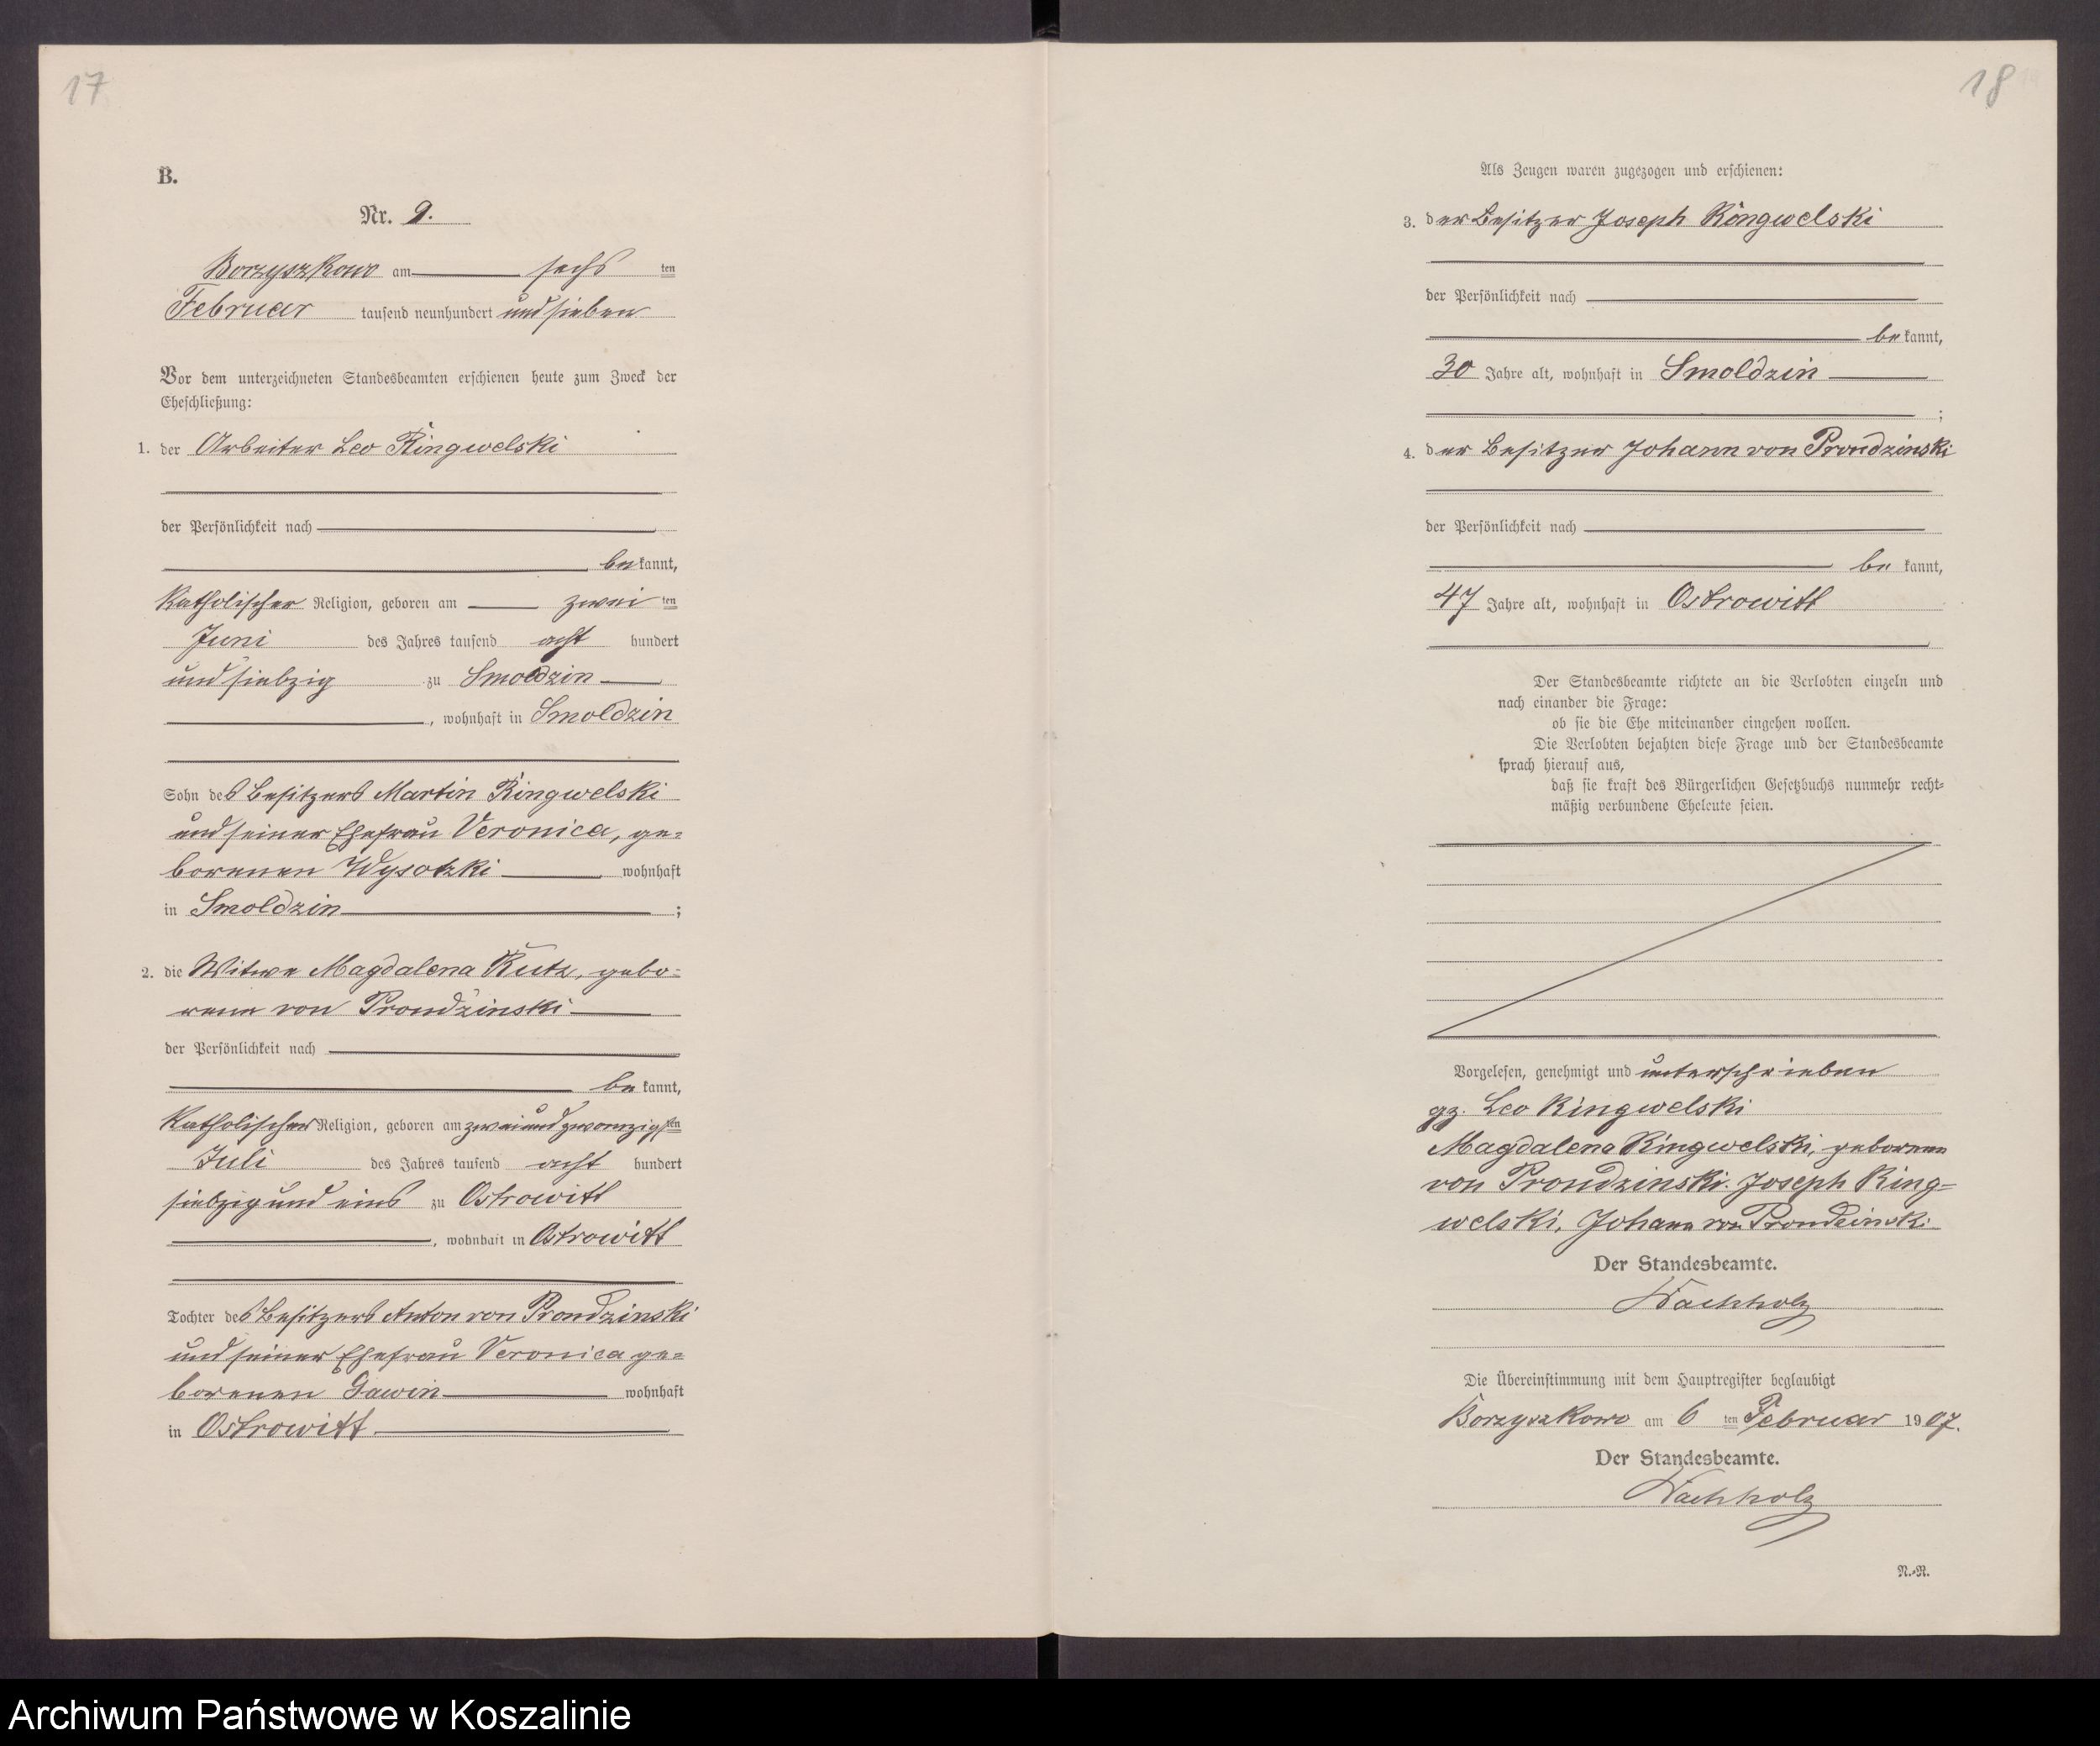 17
B.
Nr. 9.
Borzyszkowo am sechs ten
Februar tausend neunhundert und sieben
Vor dem unterzeichneten Standesbeamten erschienen heute zum Zweck der
Eheschließung:
1. der Arbeiter Leo Ringwelski
der Persönlichkeit nach
be kannt,
katholischer Religion, geboren am zwei ten
Juni des Jahres tausend acht hundert
und siebzig zu Smoldzin
, wohnhaft in Smoldzin
Sohn des Besitzers Martin Ringwelski
und seiner Ehefrau Veronica, ge-
borenen Wysotzki wohnhaft
in Smoldzin ;
2. die Witwe Magdalena Kutz, gebo-
rene von Prondzinski
der Persönlichkeit nach
be kannt,
katholischer Religion, geboren am zweiundzwanzigsten
Juli des Jahres tausend acht hundert
siebzig und eins zu Ostrowitt
, wohnhaft in Ostrowitt
Tochter des Besitzers Anton von Prondzinski
und seiner Ehefrau Veronica ge-
borenen Gawin wohnhaft
in Ostrowitt
18
Als Zeugen waren zugezogen und erschienen:
3. der Besitzer Joseph Ringwelski
der Persönlichkeit nach
be kannt,
30 Jahre alt, wohnhaft in Smoldzin
;
4. der Besitzer Johann von Prondzinski
der Persönlichkeit nach
be kannt,
47 Jahre alt, wohnhaft in Ostrowitt
Der Standesbeamte richtete an die Verlobten einzeln und
nach einander die Frage:
ob sie die Ehe miteinander eingehen wollen.
Die Verlobten bejahten diese Frage und der Standesbeamte
sprach hierauf aus,
daß sie kraft des Bürgerlichen Gesetzbuchs nunmehr recht-
mäßig verbundene Eheleute seien.
Vorgelesen, genehmigt und unterschrieben
gz. Leo Ringwelski
Magdalena Ringwelski, geborene
von Prondzinski. Joseph Ring-
welski, Johann von Prondzinski
Der Standesbeamte.
Wachholz
Die Übereinstimmung mit dem Hauptregister beglaubigt
Borzyszkowo am 6 ten Februar 1907.
Der Standesbeamte.
Wachholz
N.-R.
Archiwum Państwowe w Koszalinie